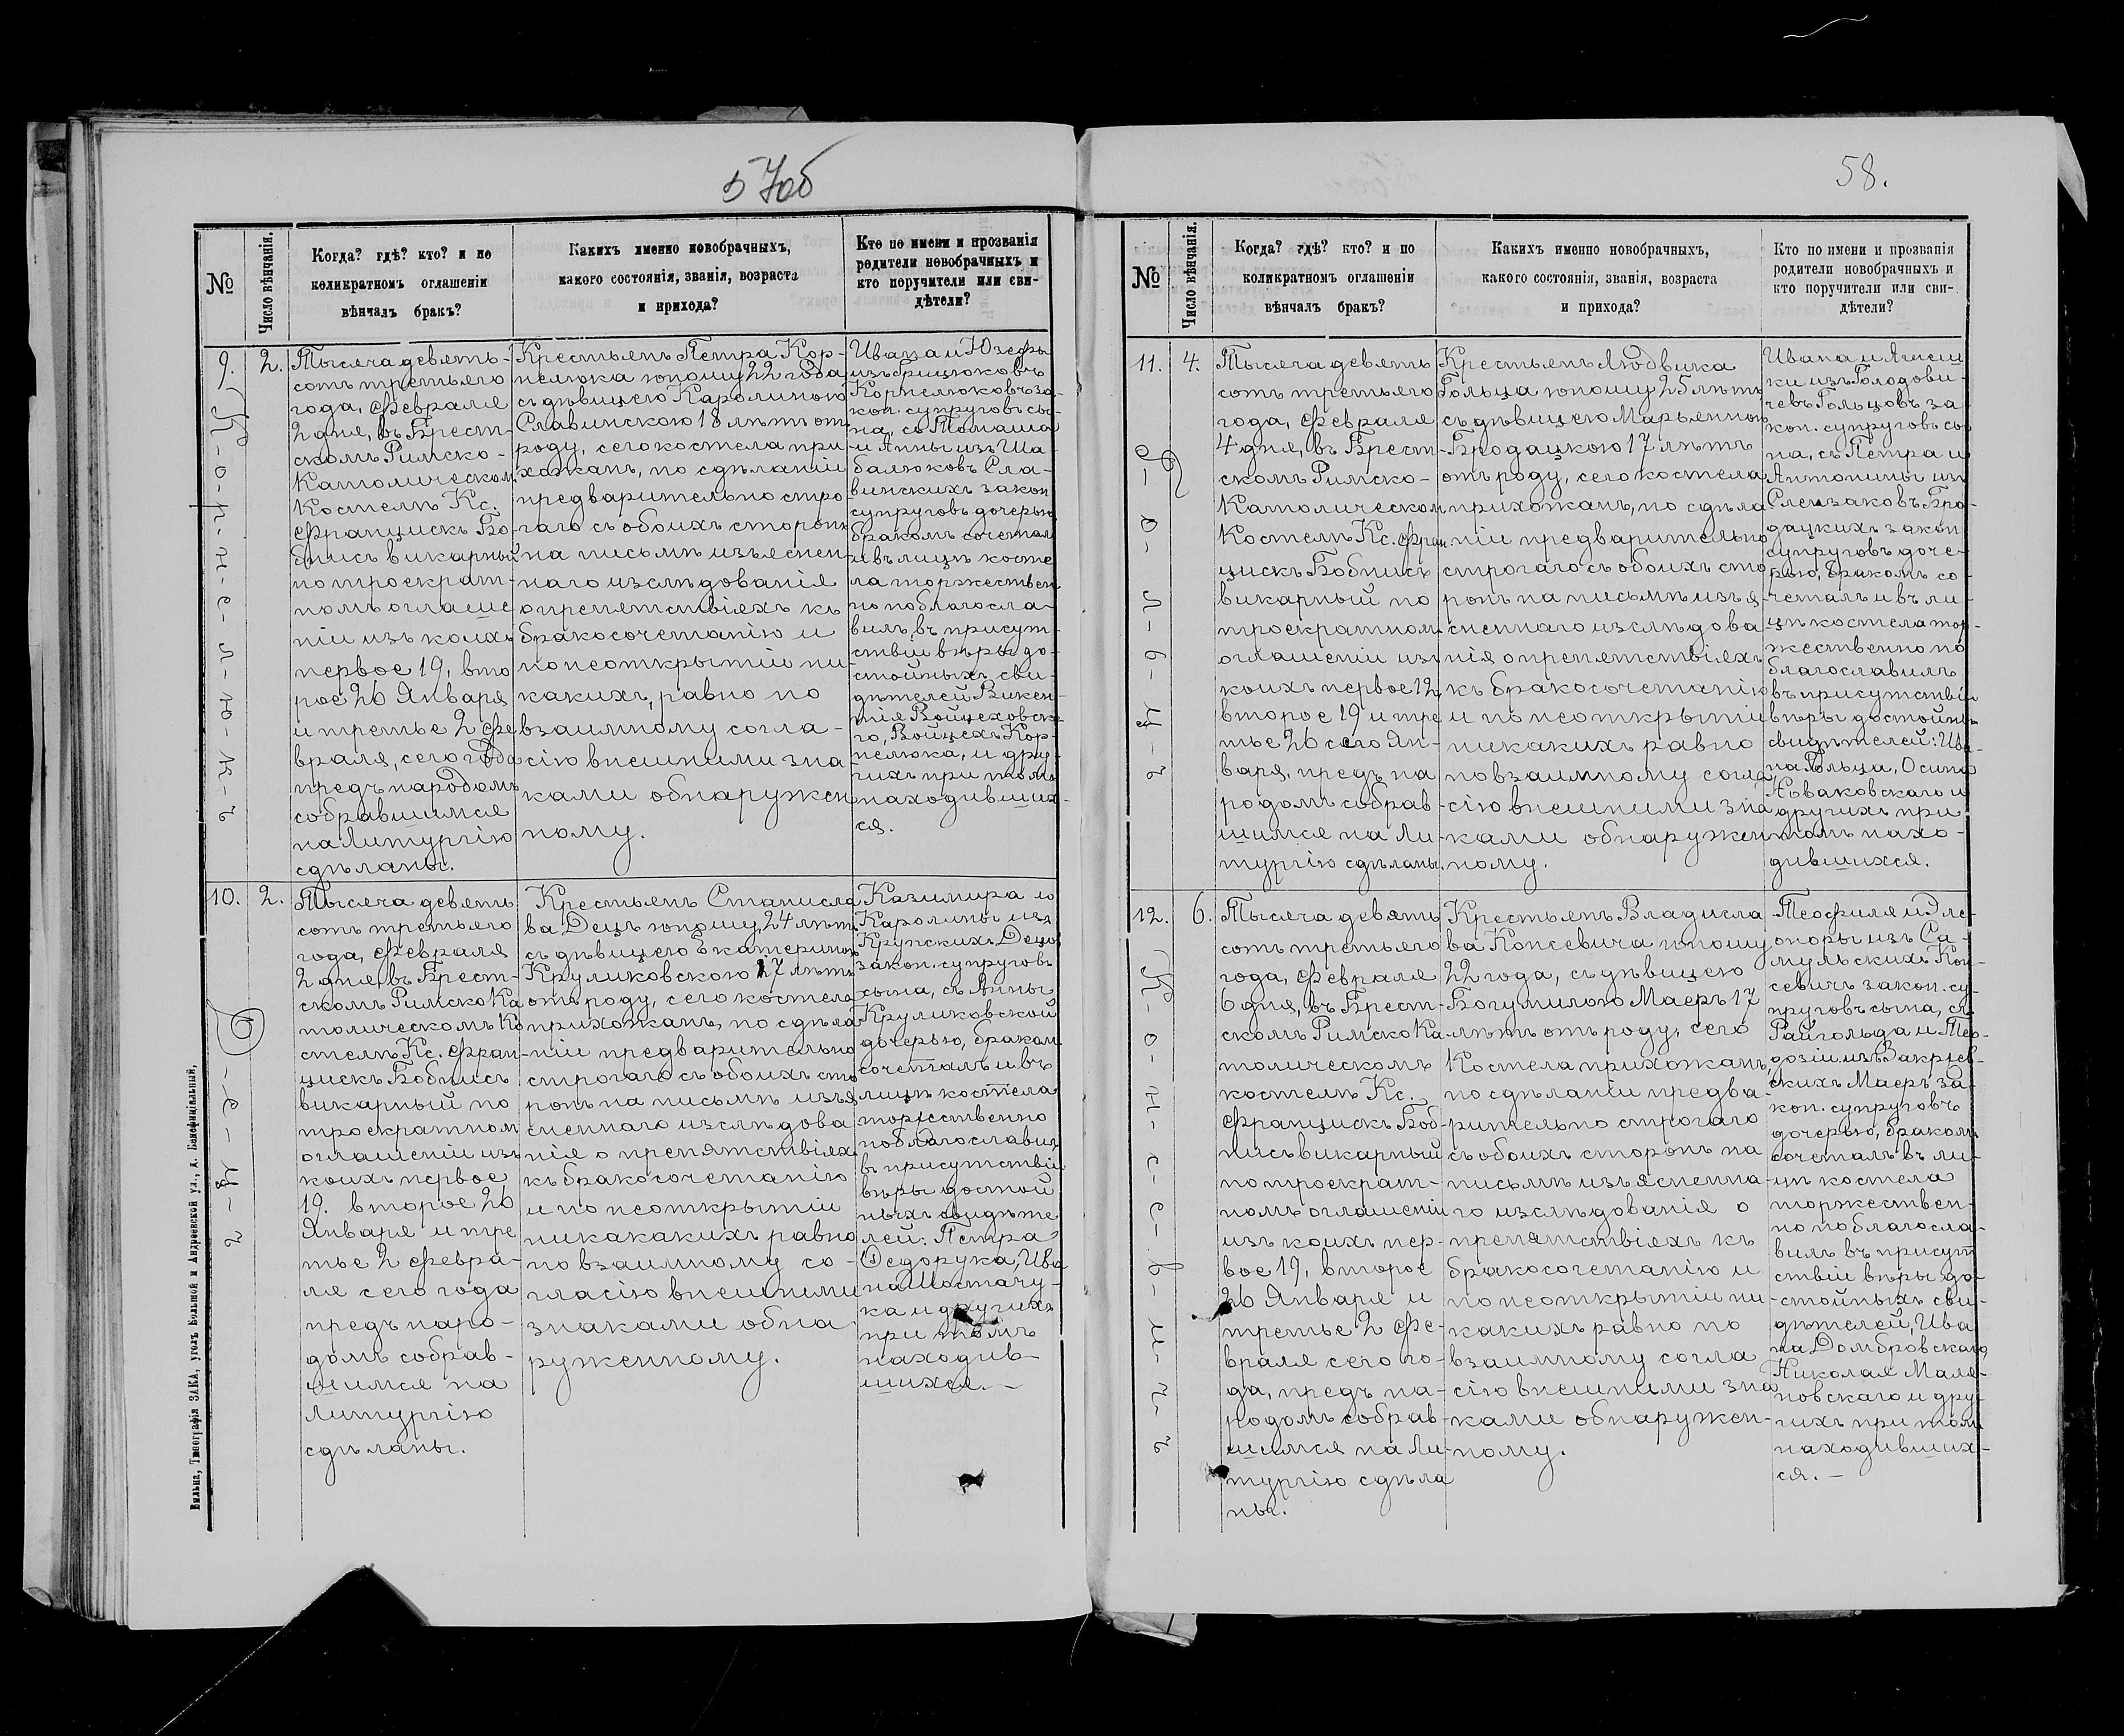 57об
№
Число вѣнчанія.
Когда? гдѣ? кто? и по
коликратномъ оглашеніи
вѣнчалъ бракъ?
Какихъ именно новобрачныхъ,
какого состоянія, званія, возраста
и прихода?
Кто по имени и прозванія
родители новобрачныхъ и
кто поручители или сви-
дѣтели?
9.
К-о-р-н-е-л-ю-к-ъ
2.
Тысяча девять-
сотъ третьяго
года, Февраля
2 дня, въ Брест-
скомъ Римско-
Католическомъ
Костелѣ Кс.
Францискъ Бо-
бнисъ викарный
по троекрат-
номъ оглаше
ніи изъ коихъ
первое 19, вто
рое 26 Января
и третье 2 Фе
враля, сего года
предъ народомъ
собравшимся
на Литургію
сдѣланы.
Крестьянъ Петра Кор-
нелюка юношу 22 года
съ дѣвицею Каролиною
Славинскою 18 лѣтъ отъ
роду, сего костела при
хожанъ, по сдѣланіи
предварительно стро
гаго съ обоихъ сторонъ
на письмѣ изъяснен-
наго изслѣдованія
о препятствіяхъ къ
бракосочетанію и
по неоткрытіи ни-
какихъ, равно по
взаимному согла-
сію внешними зна
ками обнаружен
ному.
Ивана и Юзефы
изъ Грицюковъ
Корнелюковъ за-
кон. супруговъ сы-
на, съ Томаша
и Анны изъ Ша-
балюковъ Сла-
винскихъ закон
супруговъ дочерью
бракомъ сочеталъ
и въ лицѣ косте
ла торжествен
но поблагосла-
вилъ, въ присут-
ствіи вѣры до-
стойныхъ сви-
дѣтелей Викен-
тія Войцеховска
го, Войцеха Кор-
нелюка, и дру-
гихъ при томъ
находивших-
ся.
10.
Д-е-ц-ъ
2.
Тысяча девять
сотъ третьяго
года, Февраля
2 дня, въ Брест-
скомъ Римско Ка
толическомъ Ко
стелѣ Кс. Фран-
цискъ Бобнисъ
викарный по
троекратномъ
оглашеніи изъ
коихъ первое
19. второе 26
Января и тре
тье 2 Февра-
ля сего года
предъ наро-
домъ собрав-
шимся на
Литургію
сдѣланы.
Крестьянъ Станисла
ва Децъ юношу, 24 лѣтъ
съ дѣвицею Екатериною
Круликовскою 17 лѣтъ
отъ роду, сего костела
прихожанъ, по сдѣла
ніи предварительно
строгаго съ обоихъ сто
ронъ на письмѣ изъя
сненнаго изслѣдова
нія о препятствіяхъ
къ бракосочетанію
и по неоткрытіи
никакакихъ равно
по взаимному со-
гласію внешними
знаками обна
руженному.
Казимира и
Каролины изъ
Крупскихъ Децъ
закон. супруговъ
сына, съ Анны
Круликовской
дочерью, браком
сочеталъ и въ
лицѣ костела
торжественно
поблагославилъ
въ присутствіи
вѣры достой
ныхъ свидѣте
лей: Петра
Федорука, Ива
на Шостачу-
ка и другихъ
при томъ
находив-
шихся.—
Вильна, Типографія ЗАКА, уголъ Большой и Андреевской ул., д. Бенефиціальный.
58.
№
Число вѣнчанія.
Когда? гдѣ? кто? и по
коликратномъ оглашеніи
вѣнчалъ бракъ?
Какихъ именно новобрачныхъ,
какого состоянія, званія, возраста
и прихода?
Кто по имени и прозванія
родители новобрачныхъ и
кто поручители или сви-
дѣтели?
11.
Г-о-л-ь-ц-ъ
4.
Тысяча девять
сотъ третьяго
года, Февраля
4 дня, въ Брест-
скомъ Римско-
Католическом
Костелѣ Кс. Фран
цискъ Бобнисъ
викарный по
троекратном
оглашеніи изъ
коихъ первое 12,
второе 19 и тре
тье 26 сего Ян-
варя, предъ на
родомъ собрав-
шимся на Ли-
тургію сдѣланы.
Крестьянъ Людвика
Гольца юношу 25 лѣтъ
съ дѣвицею Марьянною
Бродацкою 17 лѣтъ
отъ роду, сего костела
прихожанъ, по сдѣла
ніи предварительно
строгаго съ обоихъ сто
ронъ на письмѣ изъя-
сненнаго изслѣдова
нія о препятствіяхъ
къ бракосочетанію
и по неоткрытіи
никакихъ равно
по взаимному согла
сію внешними зна
ками обнаружен
ному.
Ивана и Агнеш
ки изъ Голодови-
чевъ Гольцовъ за
кон. супруговъ сы
на, съ Петра и
Антонины изъ
Слензаковъ Бро-
дацкихъ закон
супруговъ доче-
рью, бракомъ со
четалъ и въ ли-
цѣ костела тор-
жественно по
благославилъ
въ присутствіи
вѣры достойнъ
свидѣтелей: Ива
на Гольца, Осипа
Новаковскаго и
другихъ при
томъ нахо-
дившихся.
12.
К-о-н-с-е-в-и-ч-ъ
6.
Тысяча девять
сотъ третьяго
года, Февраля
6 дня, въ Брест-
скомъ Римско Ка-
толическомъ
костелѣ Кс.
Францискъ Боб-
нисъ викарный
по троекрат-
номъ оглашеніи
изъ коихъ пер-
вое 19, второе
26 Января и
третье 2 Фе-
враля сего го-
да, предъ на-
родомъ собрав-
шимся на Ли-
тургію сдѣла
ны.
Крестьянъ Владисла
ва Консевича юношу
22 года, съ дѣвицею
Богумилою Маеръ 17
лѣтъ отъ роду, сего
Костела прихожанъ,
по сдѣланіи предва-
рительно строгаго
съ обоихъ сторонъ на
письмѣ изъясненна-
го изслѣдованія о
препятствіяхъ къ
бракосочетанію и
по неоткрытіи ни
какихъ равно по
взаимному согла
сію внешними зна
ками обнаружен-
ному.
Теофиля и Эле-
оноры изъ Са-
мульскихъ Кон-
севичъ закон. су-
пруговъ сына, съ
Райгольда и Тео-
дозіи изъ Закржев-
скихъ Маеръ за-
кон. супруговъ
дочерью, бракомъ
сочеталъ въ ли-
цѣ костела
торжествен-
но поблагосла-
вилъ въ присут
ствіи вѣры до-
стойныхъ сви-
дѣтелей, Ива
на Домбровскаго,
Николая Маля-
новскаго и дру-
гихъ при том
находивших-
ся.—